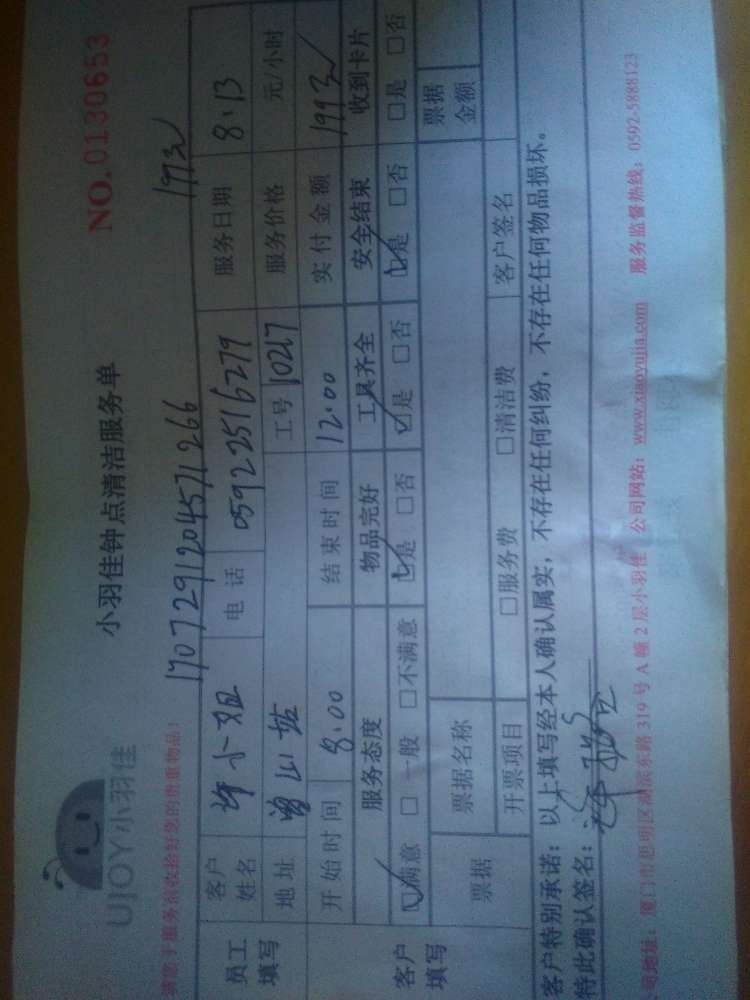 UJOY小羽佳
小羽佳钟点清洁服务单
NO.0130653
请您于服务前收拾好您的贵重物品!
1707291204571266
199元
员工填写 客户姓名 许小姐 电话 05922516279 服务日期 8.13
地址 工号 10217 服务价格 元/小时
开始时间 8.00 结束时间 12.00 实付金额 199元
客户填写 服务态度 物品完好 工具齐全 安全结束 收到卡片
☑满意 □一般 □不满意 ☑是 □否 ☑是 □否 ☑是 □否 □是 □否
票据 票据名称 票据金额
开票项目 □服务费 □清洁费 客户签名
客户特别承诺:以上填写经本人确认属实,不存在任何纠纷,不存在任何物品损坏。
特此确认签名:
司地址:厦门市思明区湖滨东路319号A幢2层小羽佳 公司网站:www.xiaoyujia.com 服务监督热线:0592-5888123